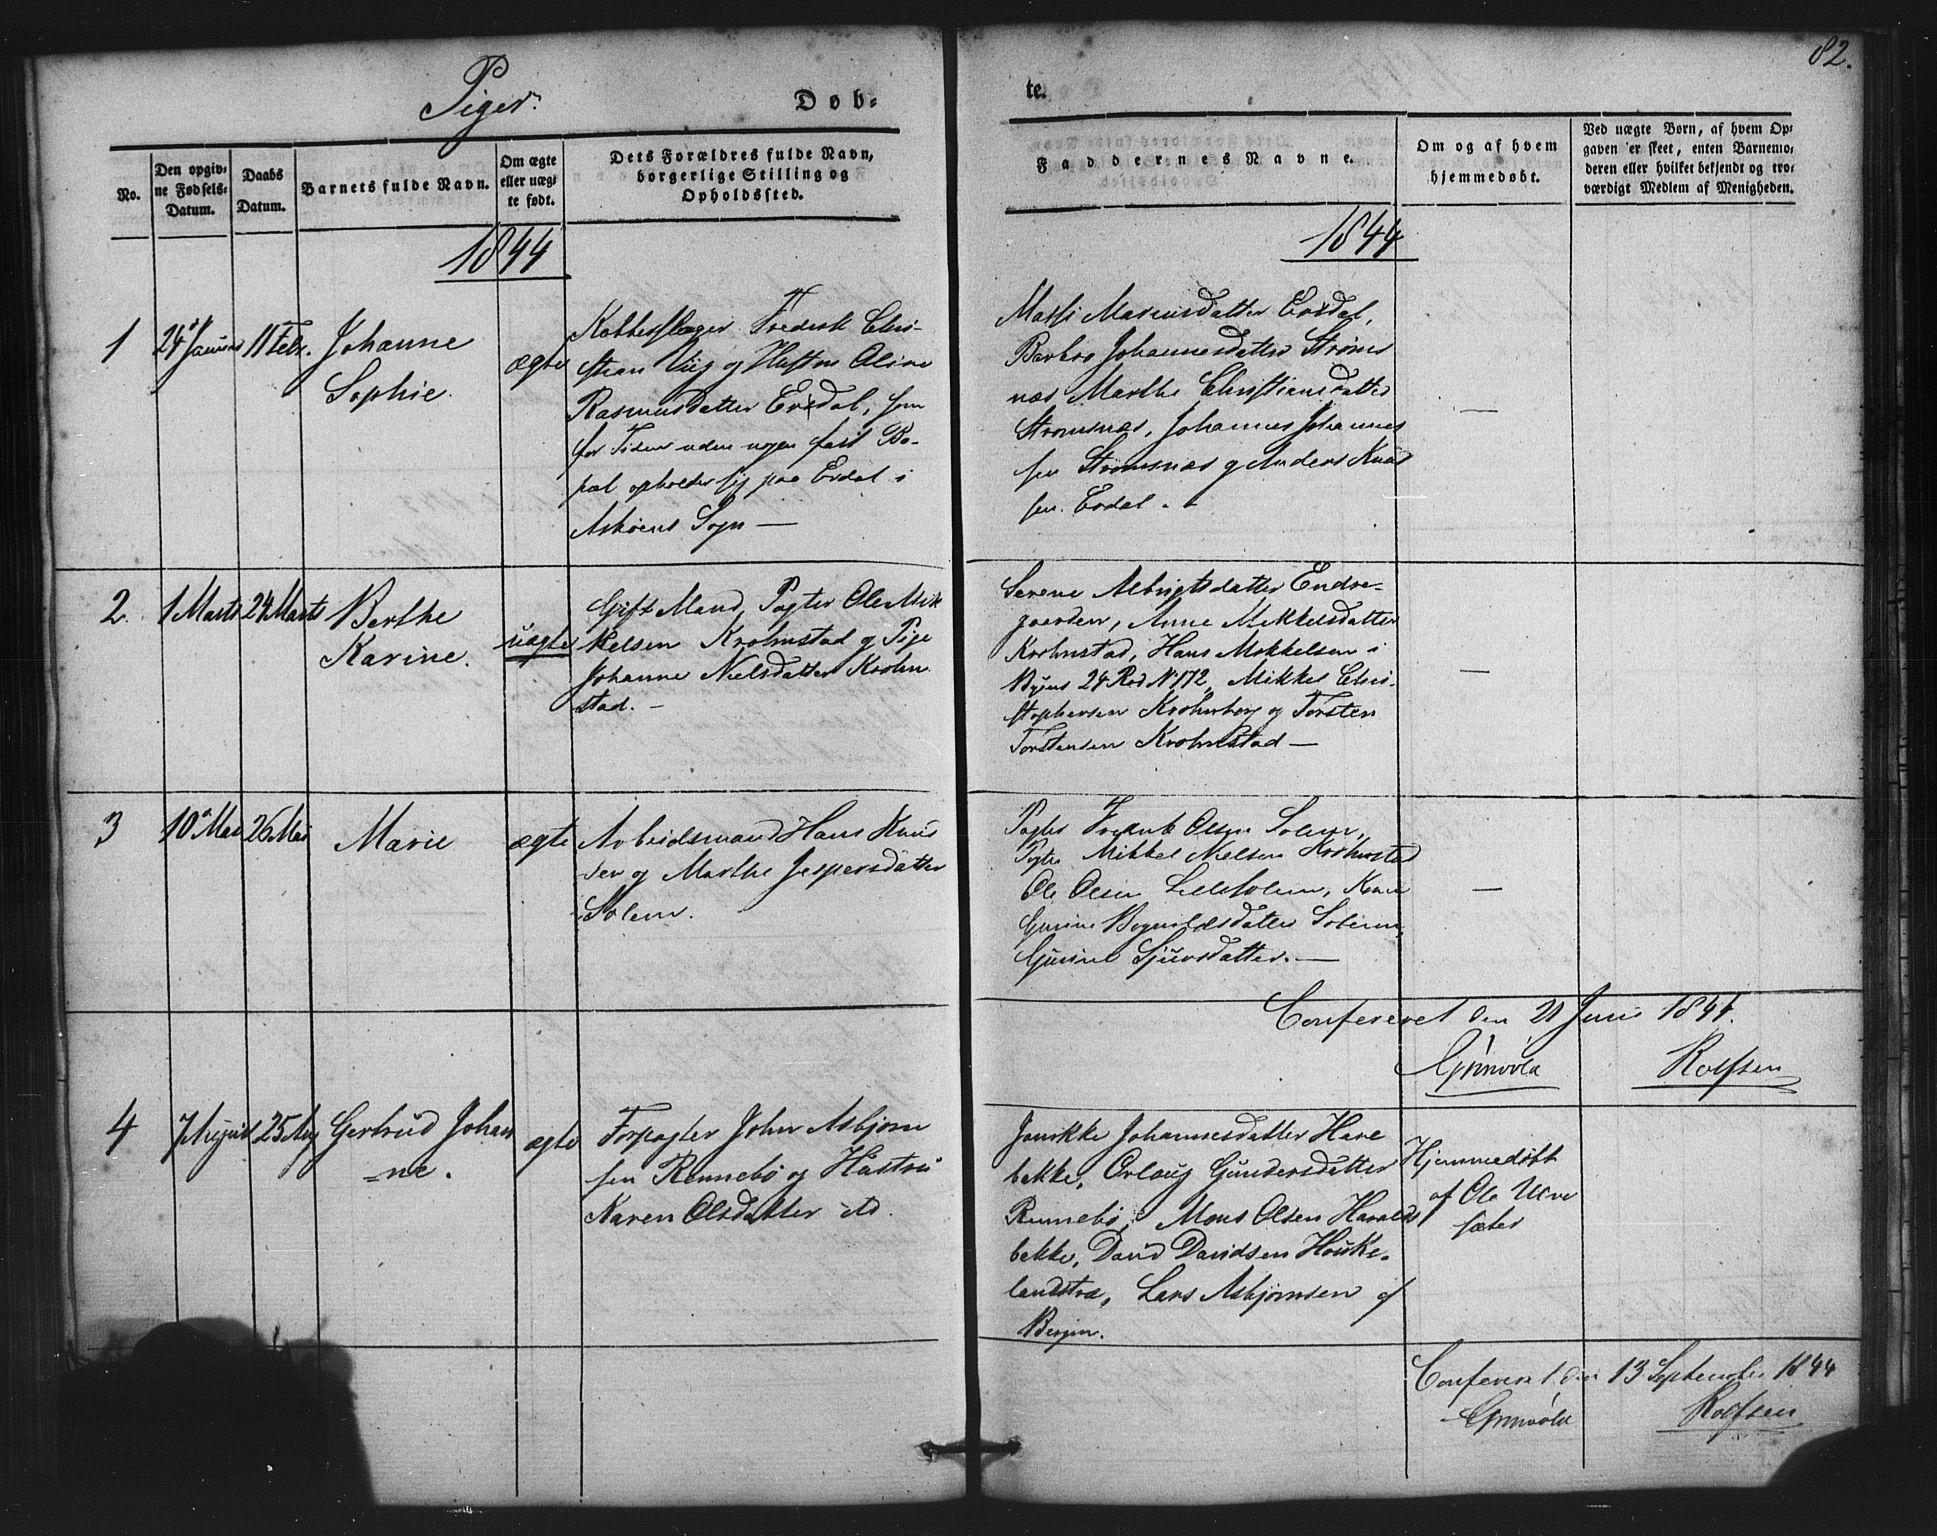 82.
Piger.
Døb-
te.
No.
Den opgiv-
ne Fødsels-
Datum.
Daabs
Datum.
Barnets fulde Navn.
Om ægte
eller uæg-
te født.
Dets Forældres fulde Navn,
borgerlige Stilling og
Opholdssted.
Faddernes Navne.
Om og af hvem
hjemmedøbt.
Ved uægte Børn, af hvem Op-
gaven er skeet, enten Barnemo-
deren eller hvilket bekjendt og tro-
værdigt Medlem af Menigheden.
1844
1844
1
24
11 Febr.
Johanne
Sophie.
ægte
Kobberslager Fredrik Chri-
stian og Hustru Oline
Rasmusdatter Erdal, som
for Tiden uden nogen fast Bo-
pæl opholder sig paa Erdal i
Askøens Sogn —
Rasmusdatter Erdal,
Barbro Johannesdatter Strøms
næs Marthe Christiansdatter
Strømsnæs, Johannes Johannes
sen Strømsnæs og Anders Knud
sen Erdal. -
—
2.
1 Marts
24 Marts
Berthe
Karine.
uægte
Gift Mand, Pagter Ole Mik
kelsen Krohnstad og Pige
Johanne Nielsdatter Krohn
stad. -
Serene Albrigtsdatter Endre-
gaarden, Anne Mikkelsdatter
Krohnstad, Hans Mikkelsen i
Byens 24 Rod No 172, Mikkel Chri-
stophersen Krohnborg og Torsten
Torstensen Krohnstad —
—
3
10 Mai
26 Mai
Marie
ægte
Arbeidsmand Hans Knud
sen og Marthe Jespersdatter
Solem.
Pagter Fredrik Olsen Solem,
Pagter Mikkel Nielsen Krohnstad
Ole Olsen Lillesolem,
Gurine Solem,
Gurine Sjursdatter. —
—
Confereret den 21 Juni 1844.
Grønvold
Rolfsen
4
7 August
25 Aug
Gertrud Johan
ne.
ægte
Forpagter John Asbjørn
sen Rennebø og Hustru
Karen Olsdatter ibd.
Jonikke Johannesdatter Hare
bekke, Orlaug Gundersdatter
Rennebø, Mons Olsen Haralds
bekke, David Davidsen Houke-
landstræ, Lars Asbjørnsen af
Bergen.
Hjemmedøbt
af Ole Ulve
sæter
Confereret den 13 September 1844
Grønvold
Rolfsen